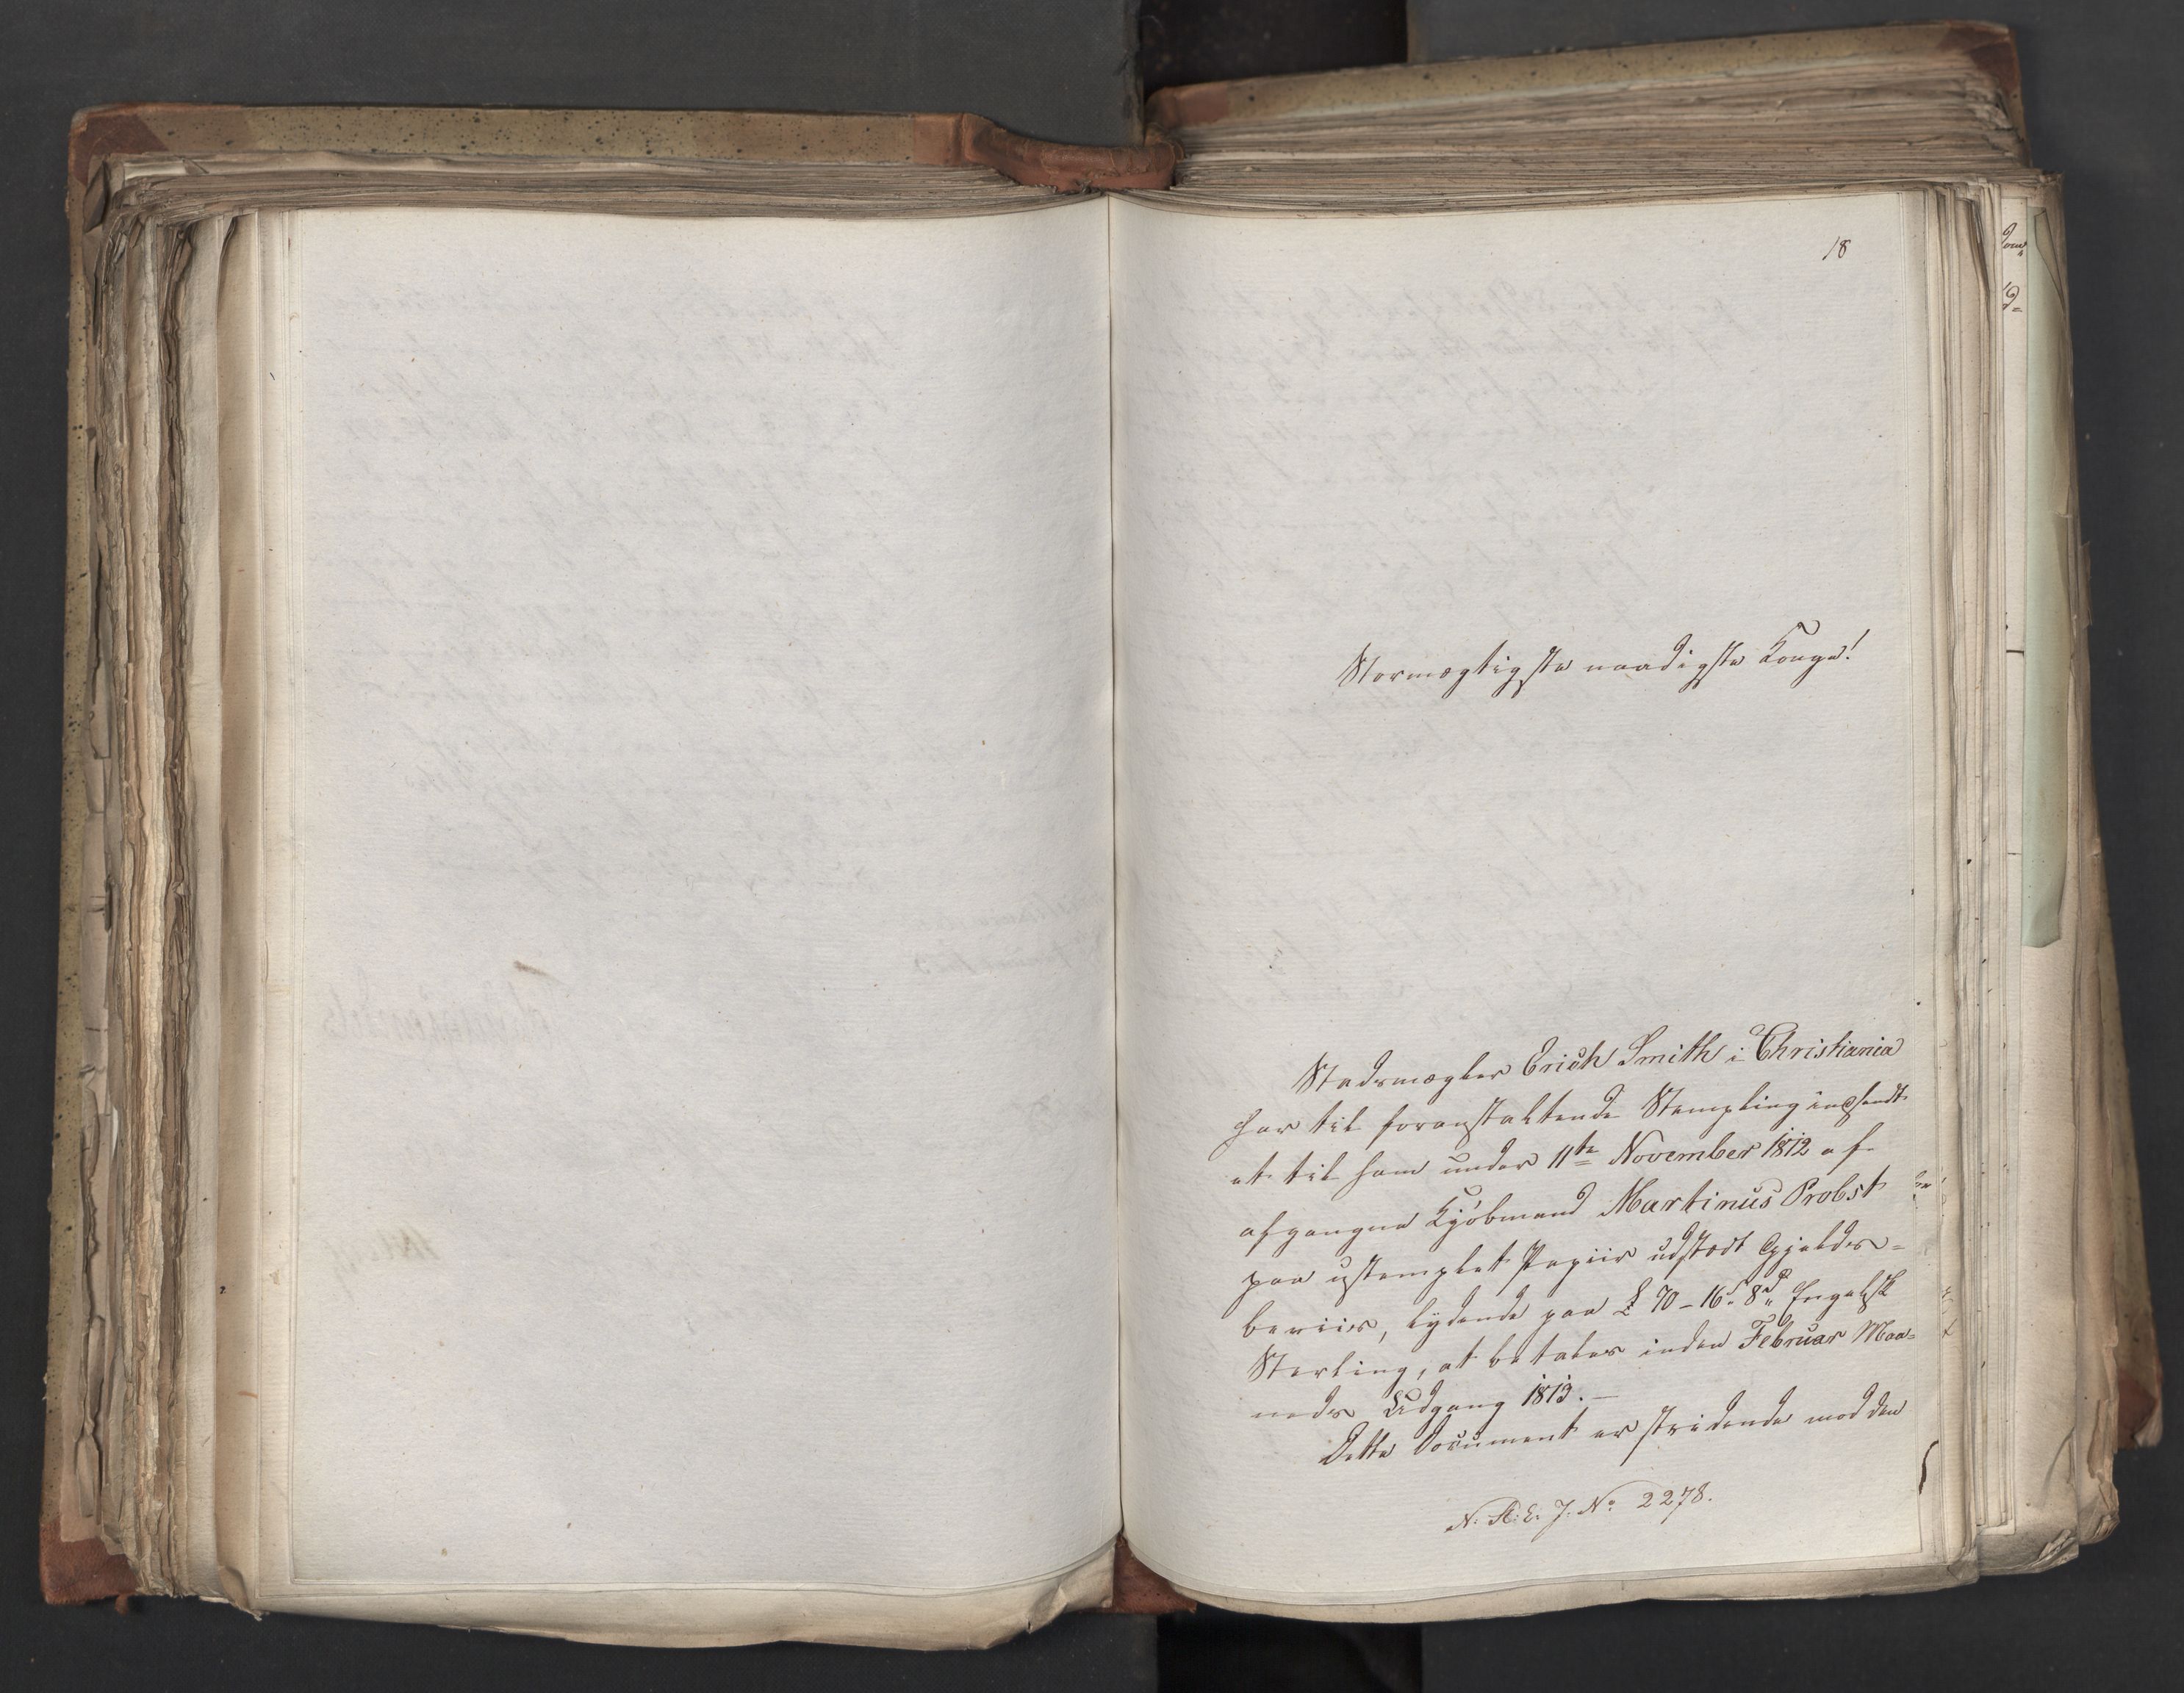 18
Stormægtigste naadigste Konge!
Stadsmægler Erich Smith i Christiania
har til foranstaltende Stempling indsendt
et til ham under 11te November 1812 af
afgangne Kjøbmand Martinus Probst
paa ustemplet Papiir udstædt Gjelds-
beviis, lydende paa £ 70-16s 8d Engelsk
Sterling, at betales inden Februar Maa-
neds Udgang 1813.-
Dette Document er stridende mod den
N: R: E. J. No 2278.